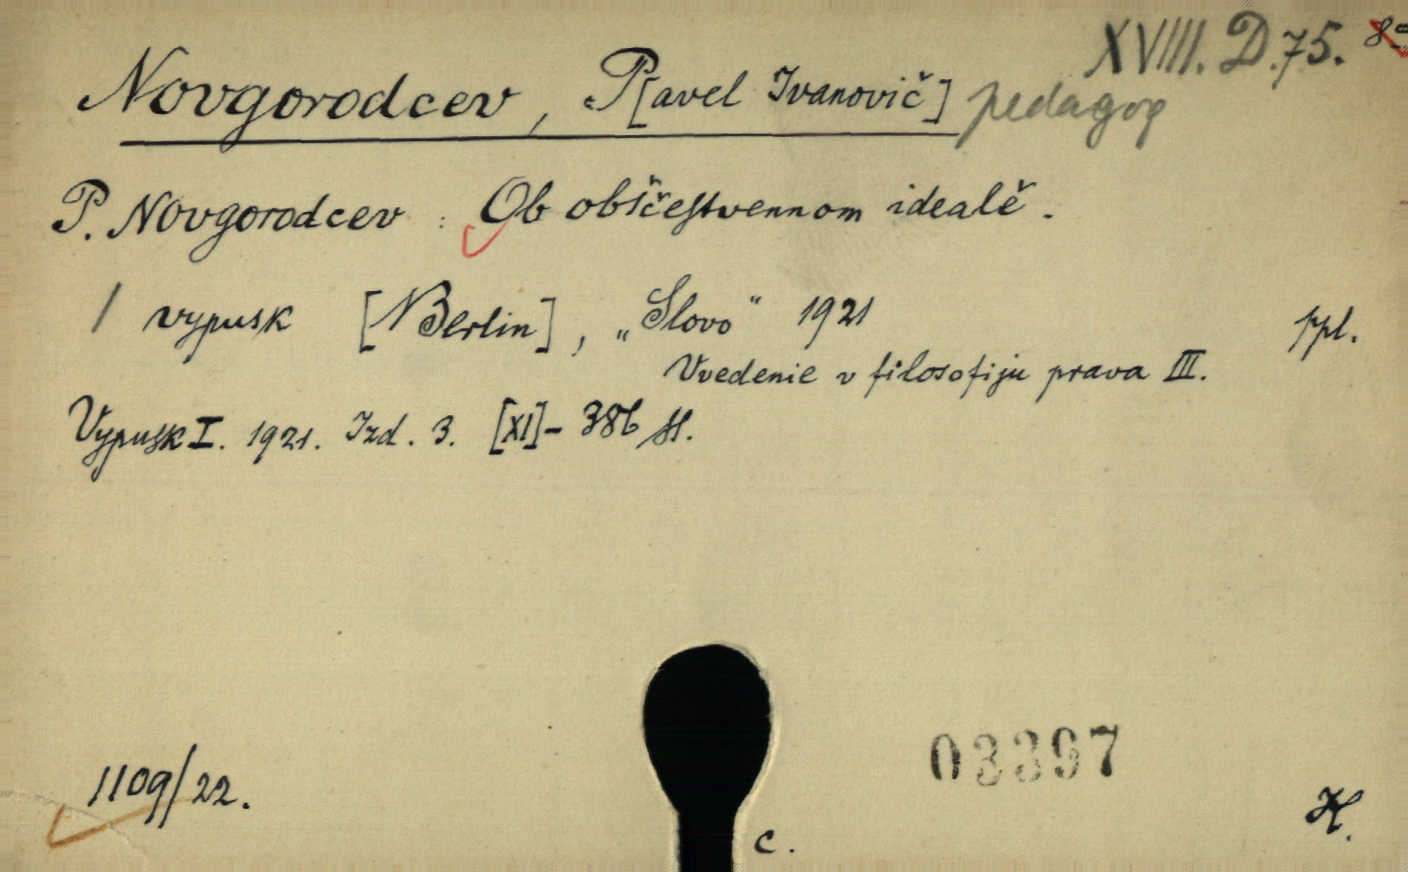 XVIII. D.75. 8º
Novgorodcev, P[avel Ivanovič] pedagog
P. Novgorodcev : Ob obščestvennom idealě.
1 vypusk [V Berlin], „Slovo" 1921 ppl.
Vvedenie v filosofiju prava III.
Vypusk I. 1921. Izd. 3. [XI]-386 st.
03397
1109/22.
H.
c.